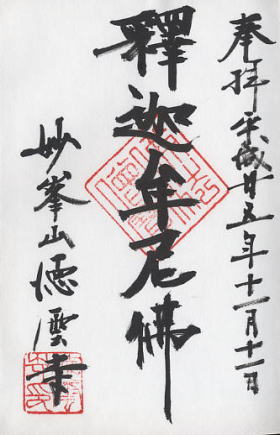 奉拝 平成廿五年十一月十一日
釋迦牟尼佛
妙峯山徳雲寺